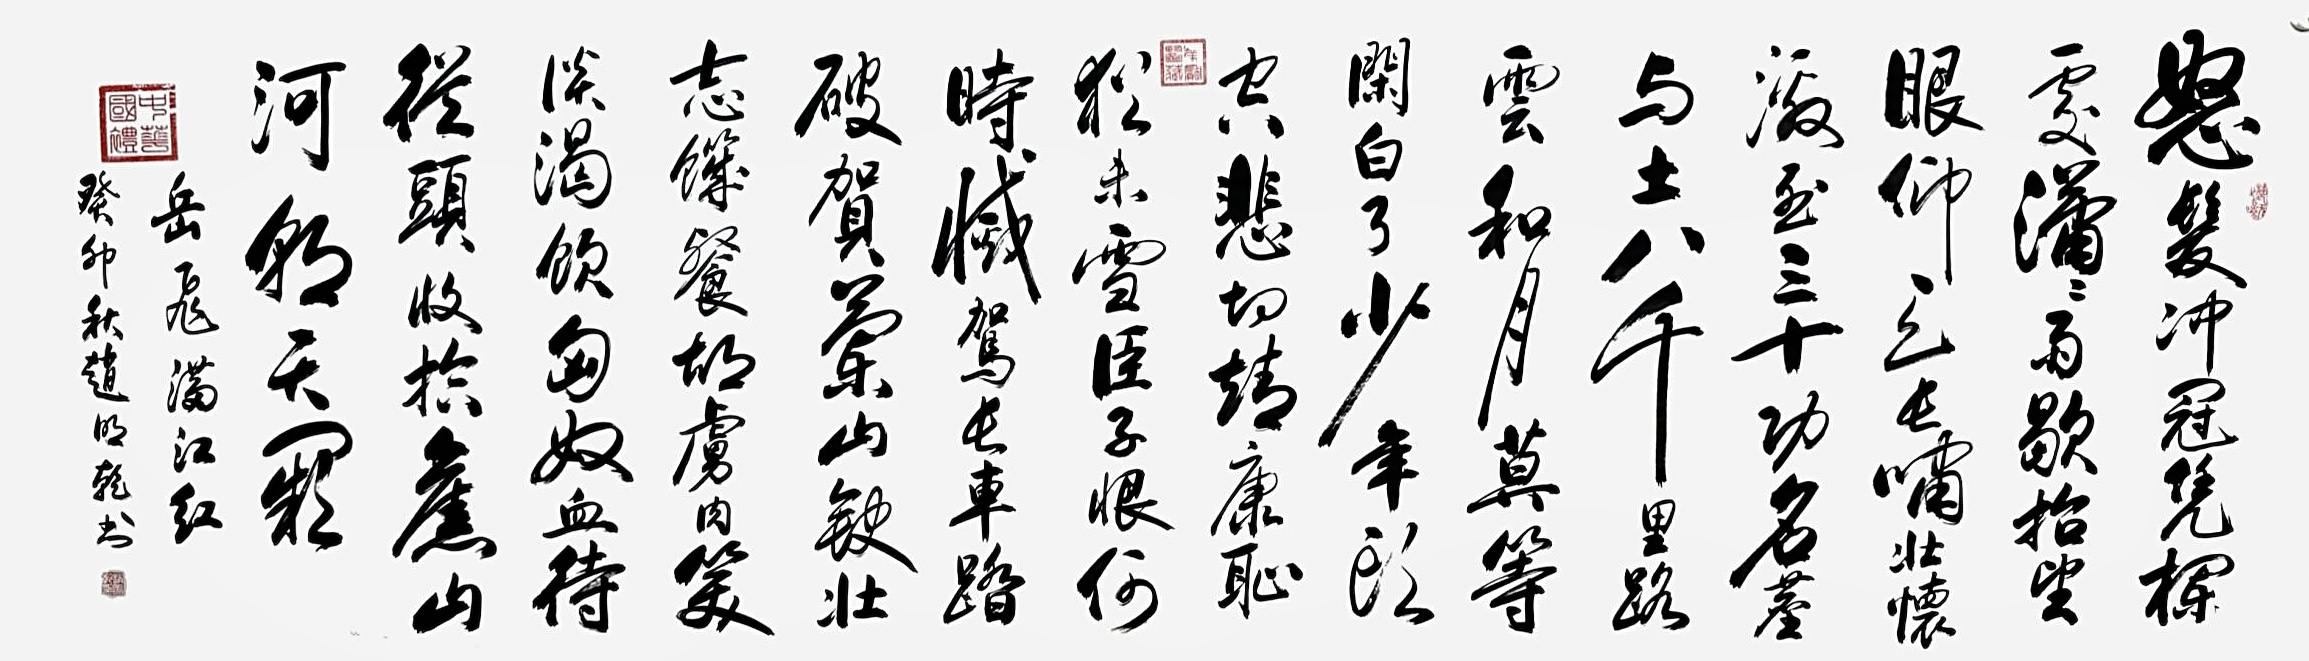 怒髮冲冠凭欄
處瀟〻雨歇抬望
眼仰天长嘯壮懷
激烈三十功名塵
与土八千里路
雲和月莫等
閑白了少年头
空悲切靖康恥
犹未雪臣子恨何
時滅駕长車踏
破賀蘭山缺壮
志饑餐胡虜肉笑
談渴飲匈奴血待
從頭收拾舊山
河朝天闕
中華國禮
岳飛满江红
癸卯秋趙明乾书